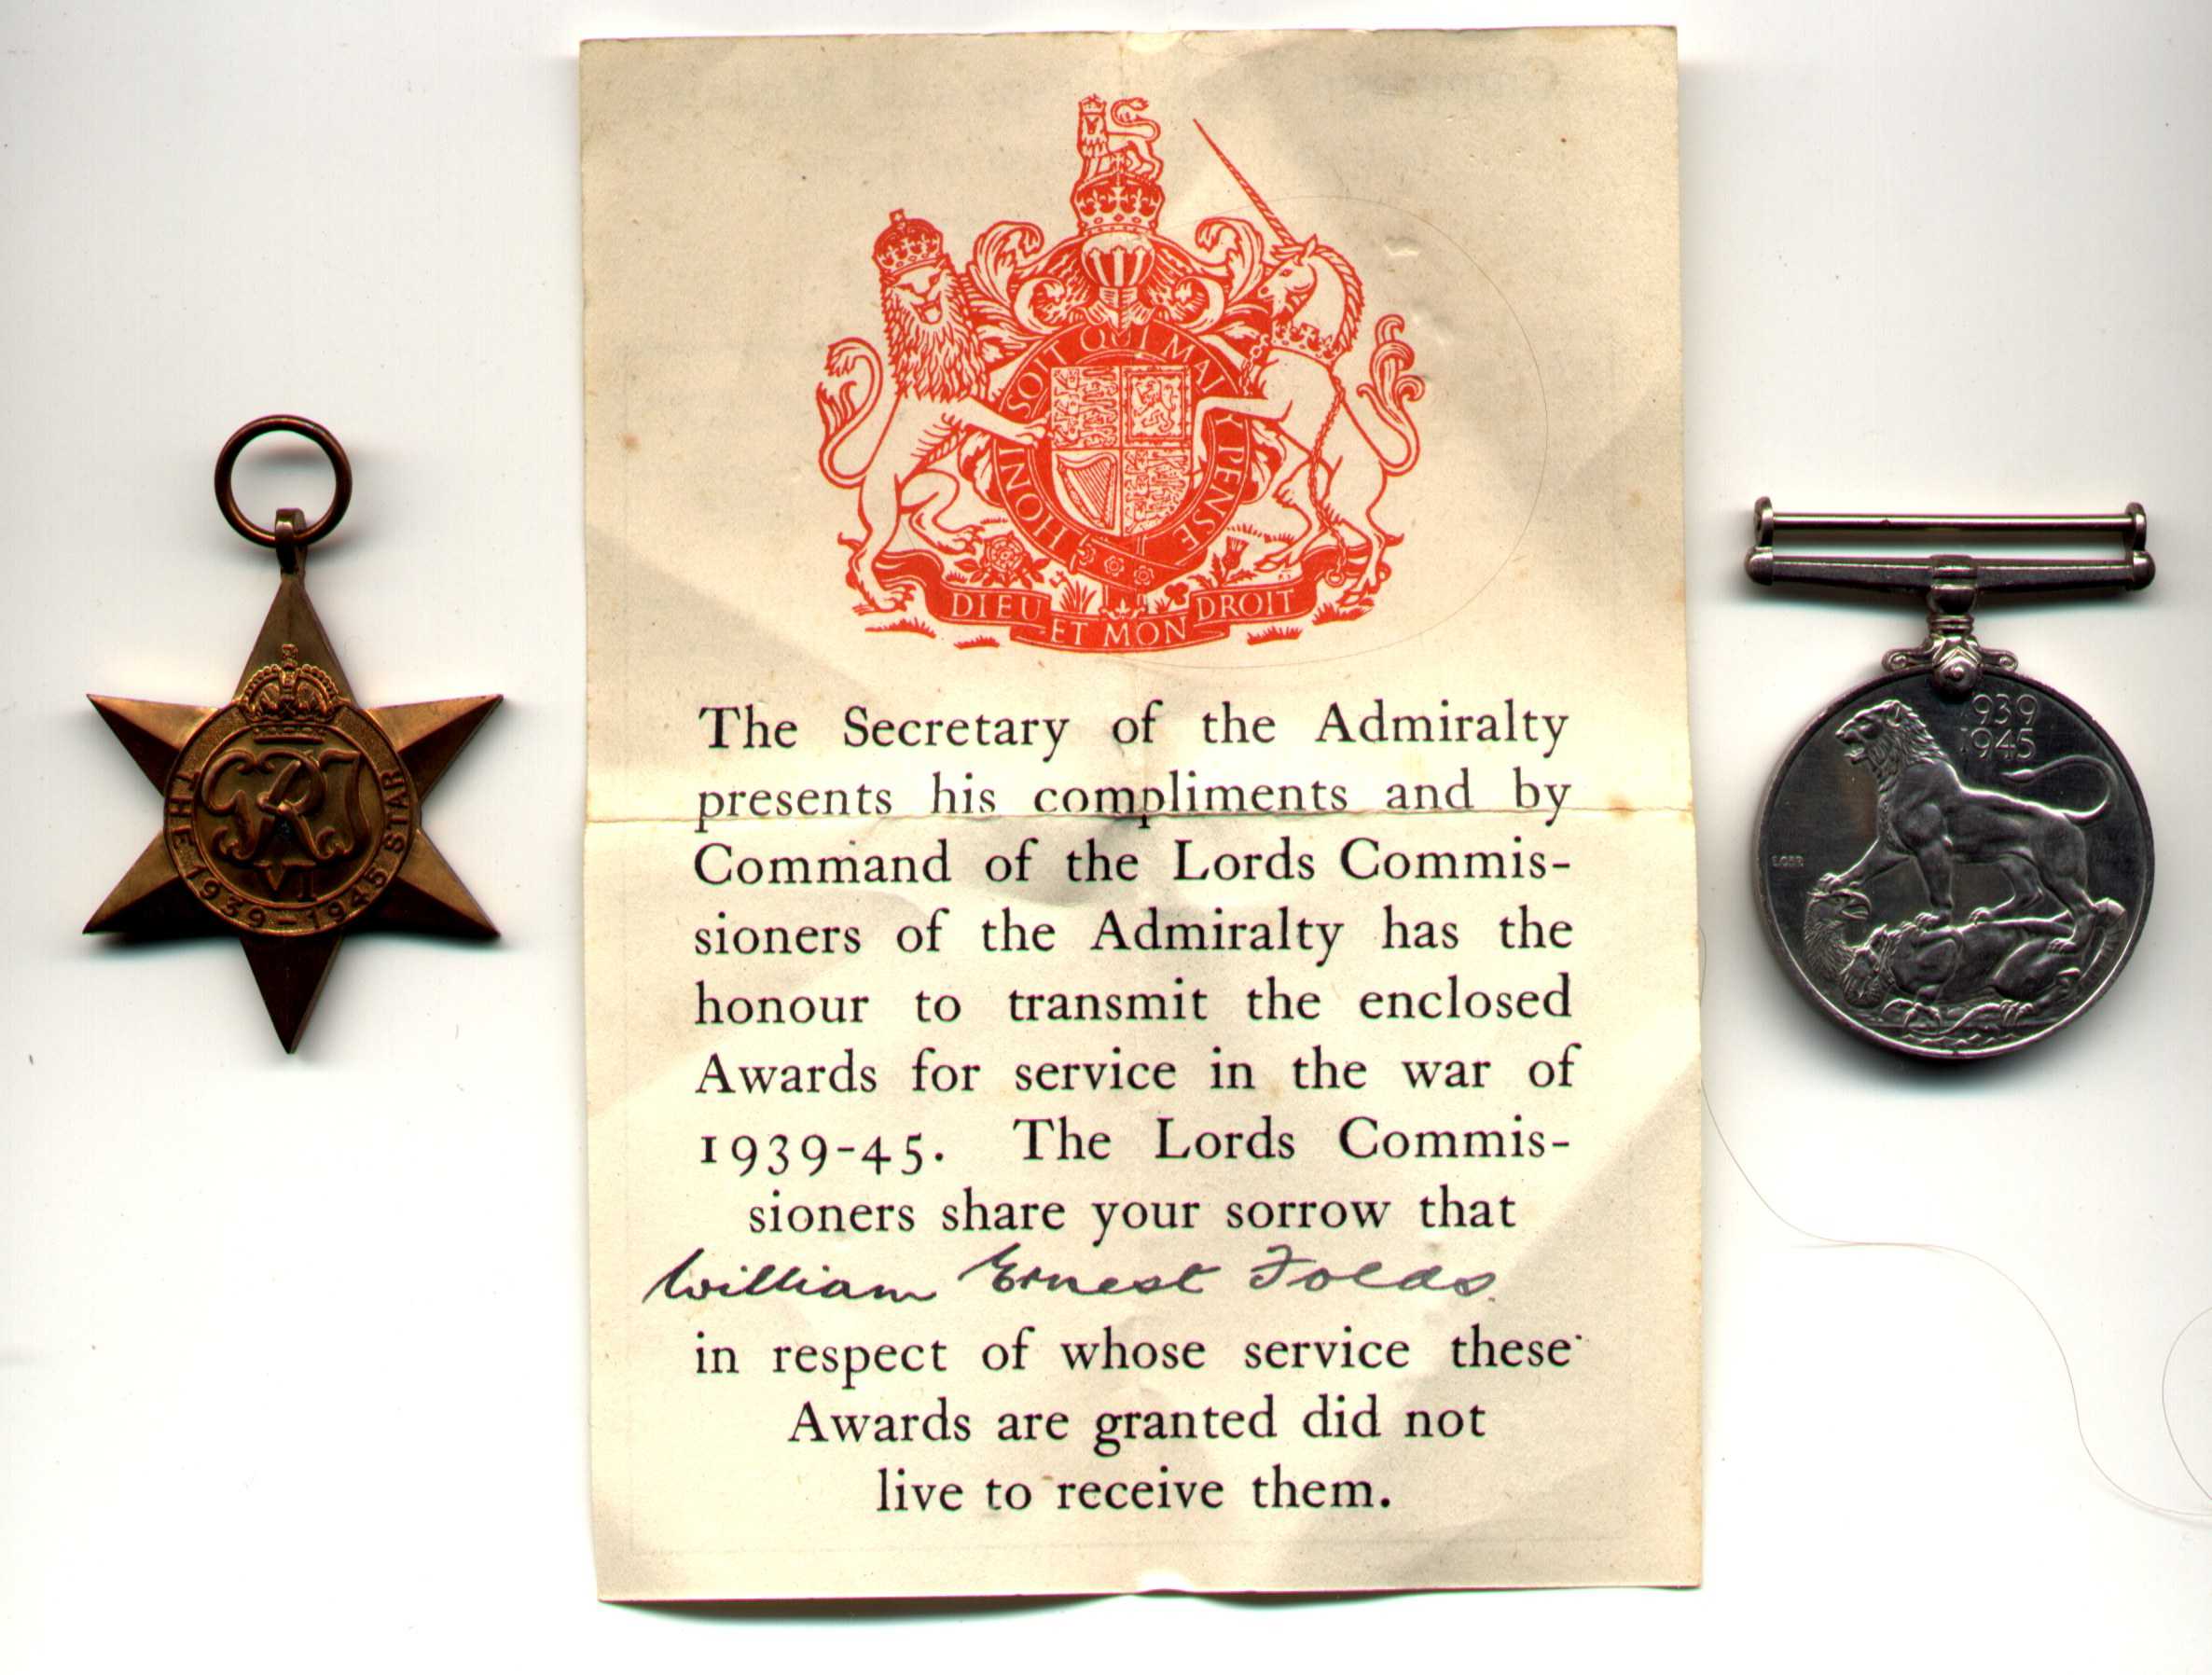 HONI SOIT QUI MAL Y PENSE
DIEU ET MON DROIT
The Secretary of the Admiralty
presents his compliments and by
Command of the Lords Commis-
sioners of the Admiralty has the
honour to transmit the enclosed
Awards for service in the war of
1939-45. The Lords Commis-
sioners share your sorrow that
William Ernest Folds
in respect of whose service these
Awards are granted did not
live to receive them.
GRI
VI
THE 1939-1945 STAR
1939
1945